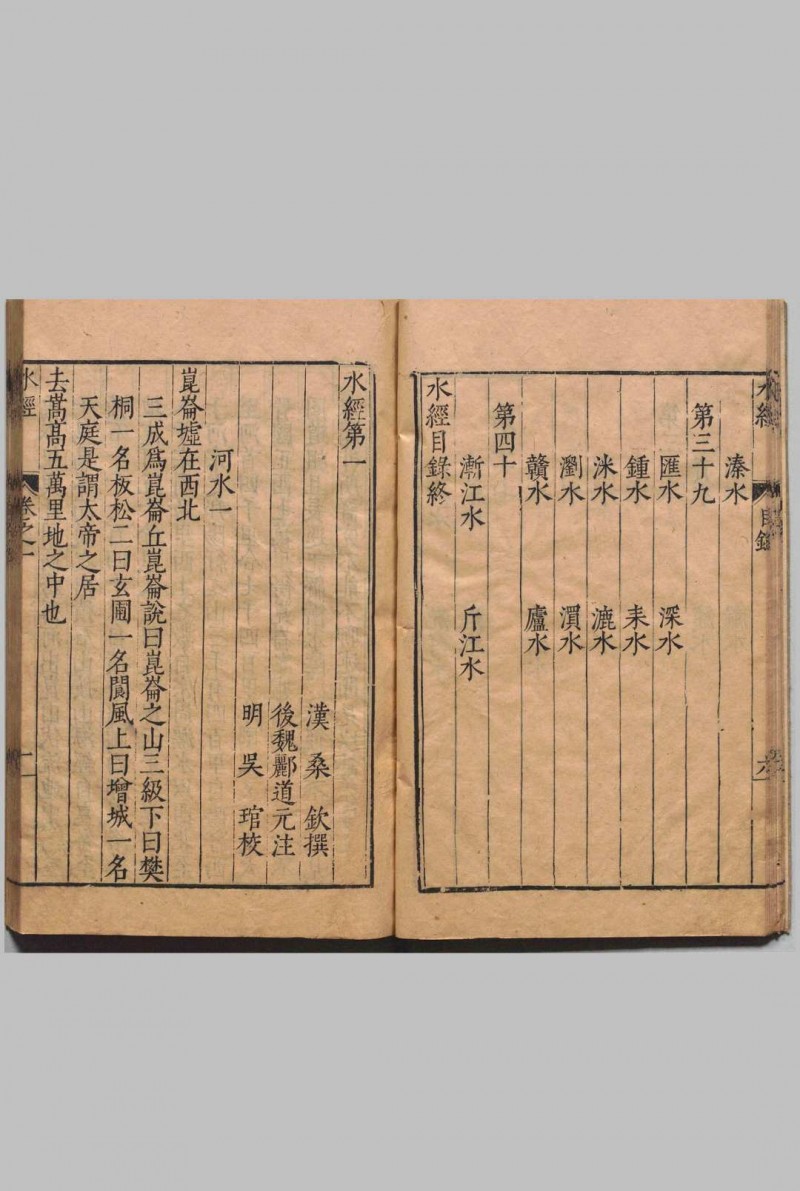 水經 目錄 六
溱水
第三十九
匯水 深水
鍾水 耒水
洣水 漉水
瀏水 㵋水
贛水 廬水
第四十
漸江水 斤江水
水經目錄終
水經第一
漢 桑 欽撰
後魏酈道元注
明 吳 琯校
河水一
崑崙墟在西北
三成爲崑崙丘崑崙說曰崑崙之山三級下曰樊
桐一名板松二曰玄圃一名閬風上曰增城一名
天庭是謂太帝之居
去嵩高五萬里地之中也
水經 卷之一 一